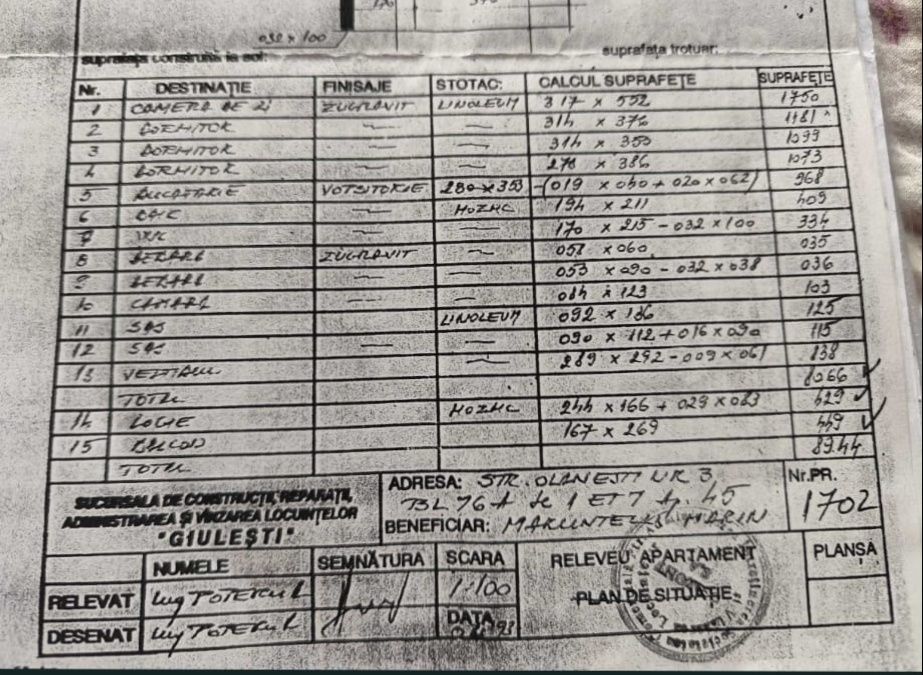 032 x 100
suprafața construită la sol: suprafața trotuar:
Nr. DESTINAȚIE FINISAJE STOTAC: CALCUL SUPRAFEȚE SUPRAFEȚE
1 CAMERA DE ZI ZUGRAVIT LINOLEUM 317 x 552 1750
2 DORMITOR — — 314 x 376 1181
3 DORMITOR — — 314 x 350 1099
4 DORMITOR — — 278 x 386 1073
5 BUCATARIE 280 x 353 -(019 x 040 + 020 x 062) 968
6 — MOZAIC 194 x 211 409
7 — — 170 x 215 - 032 x 100 334
8 ZUGRAVIT — 058 x 060 035
9 — — 053 x 090 - 032 x 038 036
10 CAMARA — — 084 x 123 103
11 SAS LINOLEUM 092 x 136 125
12 SAS — — 090 x 112 + 016 x 090 115
13 — 289 x 292 - 009 x 061 838
TOTAL 8066
14 LOGIE MOZAIC 244 x 166 + 029 x 083 429
15 BALCON 167 x 269 449
TOTAL 8944
SUCURSALA DE CONSTRUCȚII, REPARAȚII,
ADMINISTRAREA ȘI VÎNZAREA LOCUINȚELOR
"GIULEȘTI"
ADRESA: STR. OLANESTI NR 3
BL 76A sc 1 ET 7 Ap. 45
BENEFICIAR: MARIN
Nr.PR.
1702
NUMELE SEMNĂTURA SCARA
RELEVAT Ing 1:100
DESENAT Ing DATA
RELEVEU APARTAMENT
PLAN DE SITUAȚIE
PLANȘA